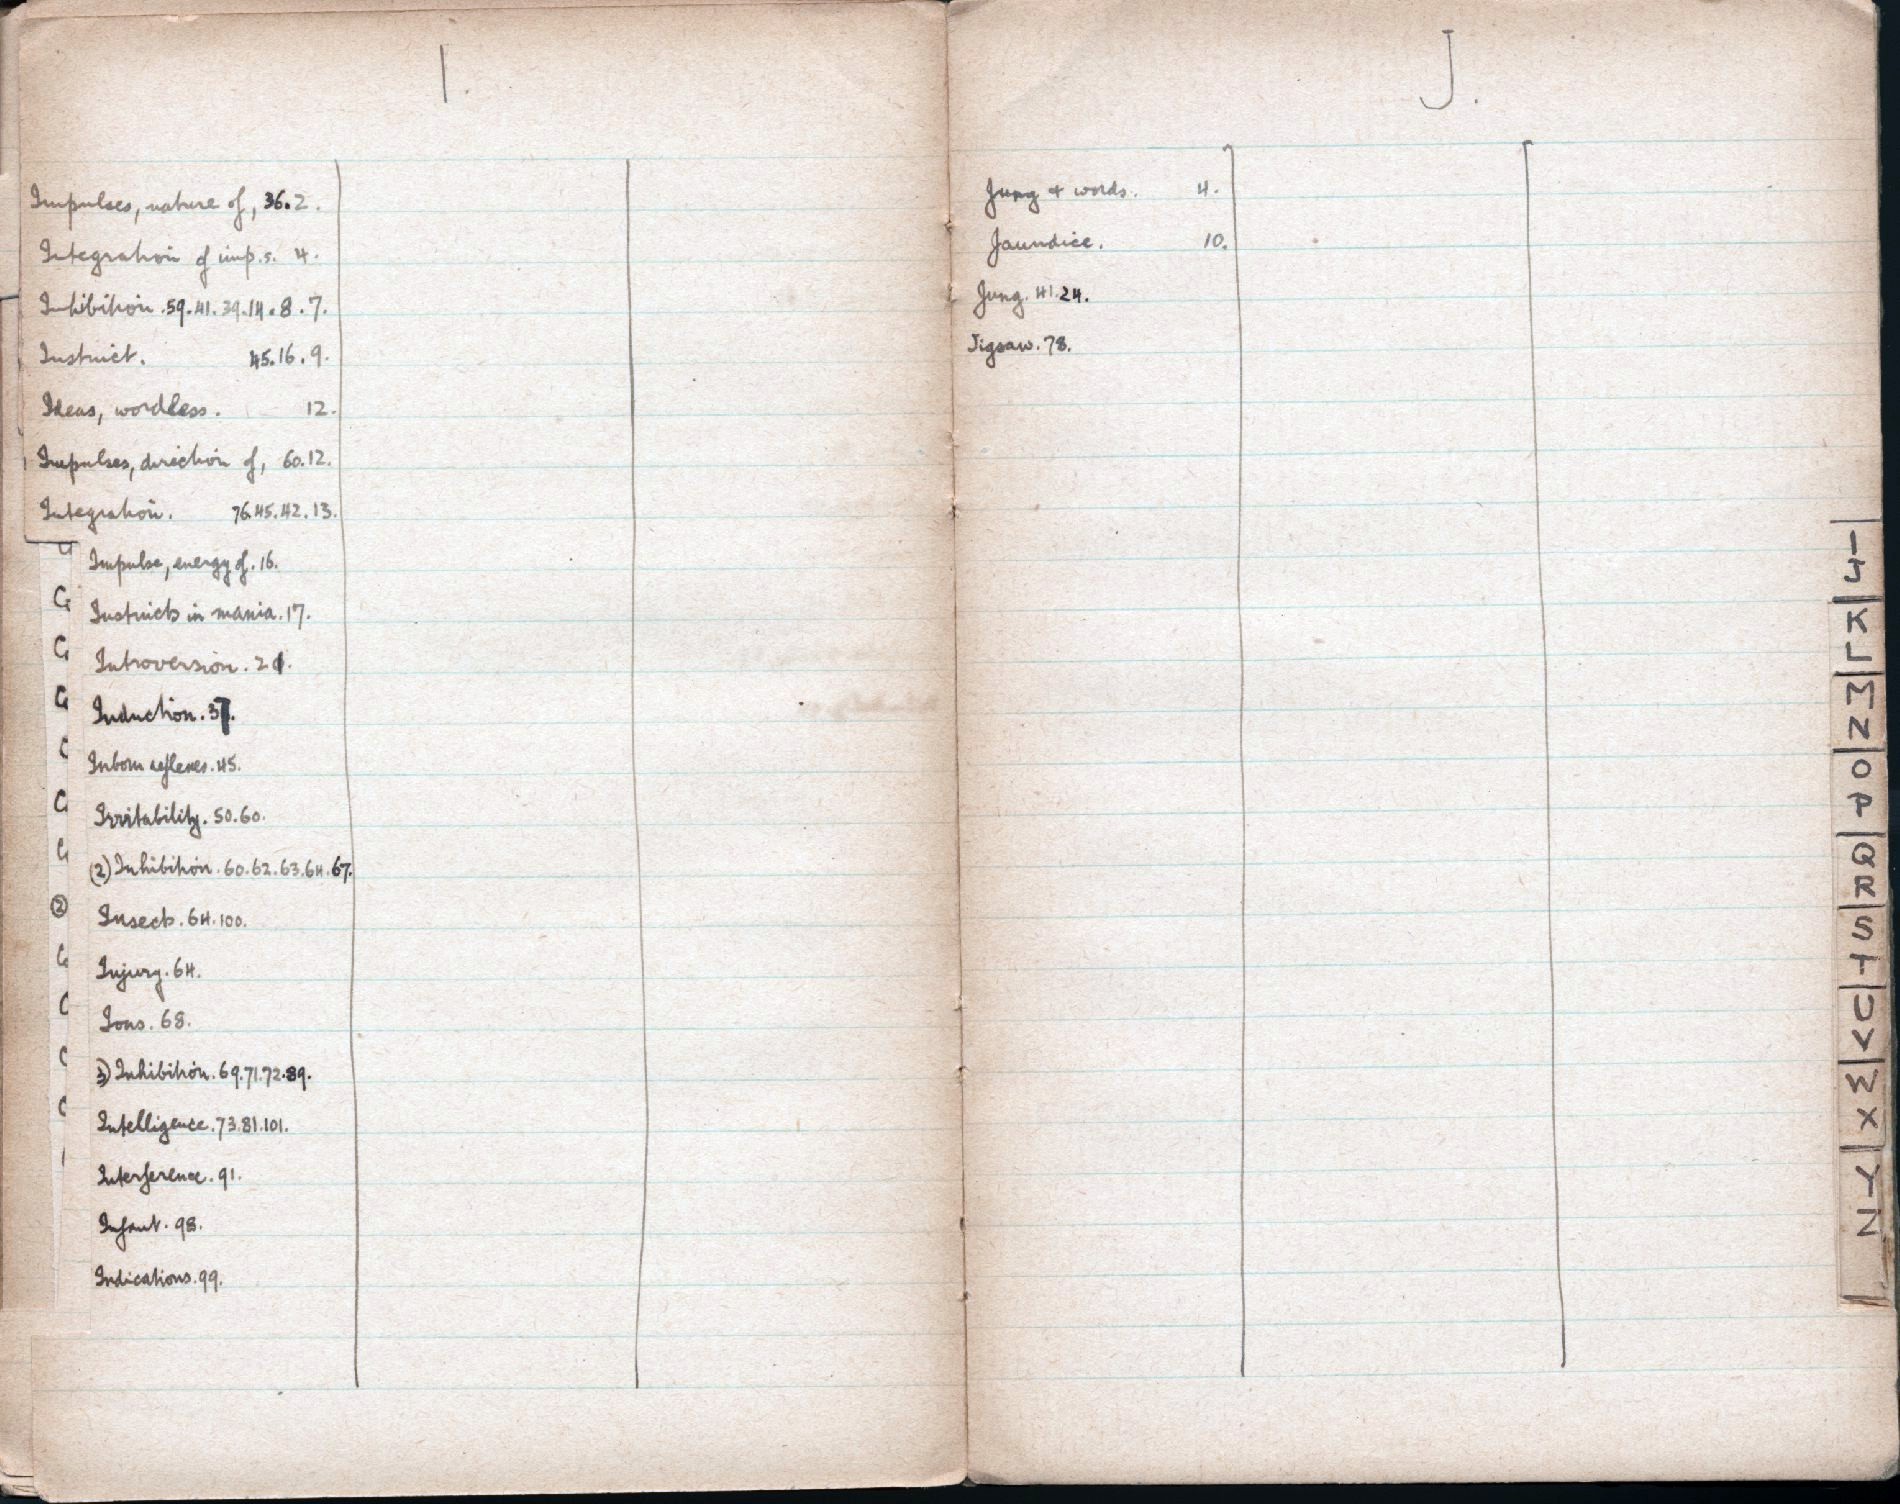 I.
Impulses, nature of, 36.2.
Integration of imp.s. 4.
Inhibition. 59.41.39.14.8.7.
Instinct. 45.16.9.
Ideas, wordless. 12.
Impulses, direction of, 60.12.
Integration. 76.45.42.13.
Impulse, energy of. 16.
Instincts in mania. 17.
Introversion. 21.
Induction. 37.
Inborn reflexes. 45.
Irritability. 50.60.
(2) Inhibition. 60.62.63.64.67.
Insects. 64.100.
Injury. 64.
Ions. 68.
3) Inhibition. 69.71.72.89.
Intelligence. 73.81.101.
Interference. 91.
Infant. 98.
Indications. 99.
J.
Jung + words. 4.
Jaundice. 10.
Jung. 41.24.
Jigsaw. 78.
I
J
K
L
M
N
O
P
Q
R
S
T
U
V
W
X
Y
Z